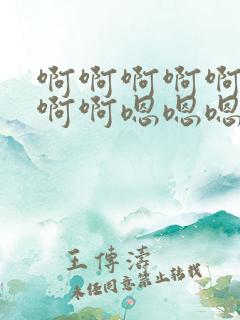 啊啊啊啊啊
啊啊嗯嗯嗯
王传涛
未经同意禁止转载